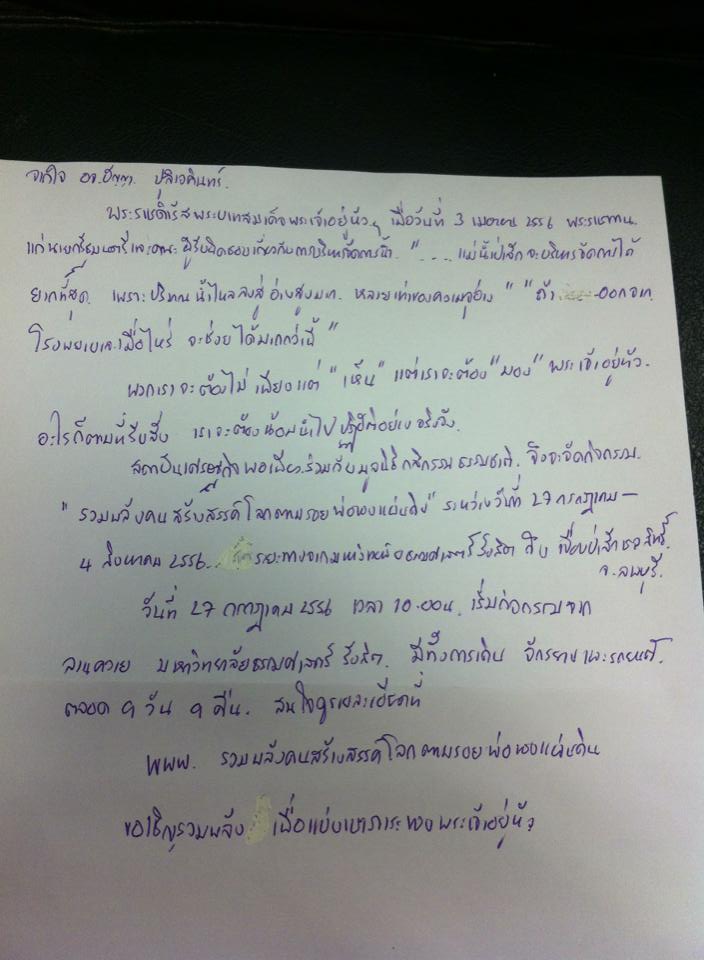 จากใจ อจ.ปัญญา ปุลิเวคินทร์.
พระราชดำรัสพระบาทสมเด็จพระเจ้าอยู่หัวฯ เมื่อวันที่ 3 เมษายน 2556 พระราชทาน
แก่นายกรัฐมนตรีและคณะ ผู้รับผิดชอบเกี่ยวกับการบริหารจัดการน้ำ "....แม่น้ำป่าสักจะบริหารจัดการได้
ยากที่สุด เพราะปริมาณน้ำไหลลงสู่อ่างสูงมาก หลายเท่าของความจุอ่าง" "ถ้า ออกจาก
โรงพยาบาลเมื่อไหร่ จะช่วยได้มากกว่านี้"
พวกเราจะต้องไม่เพียงแต่ "เห็น" แต่เราจะต้อง "มอง" พระเจ้าอยู่หัว.
อะไรก็ตามที่รับสั่ง เราจะต้องน้อมนำไปปฏิบัติอย่างจริงจัง.
สถาบันเศรษฐกิจพอเพียงร่วมกับมูลนิธิกสิกรรมธรรมชาติ จึงจะจัดกิจกรรม
"รวมพลังคนสร้างสรรค์โลกตามรอยพ่อของแผ่นดิน" ระหว่างวันที่ 27 กรกฎาคม –
4 สิงหาคม 2556. ระยะทางจากมหาวิทยาลัยธรรมศาสตร์รังสิต ถึง เขื่อนป่าสักชลสิทธิ์
จ.ลพบุรี.
วันที่ 27 กรกฎาคม 2556 เวลา 10.00น. เริ่มกิจกรรมจาก
ลานควาย มหาวิทยาลัยธรรมศาสตร์ รังสิต. มีทั้งการเดิน จักรยานและรถยนต์.
ตลอด 9 วัน 9 คืน. สนใจดูรายละเอียดที่
เพจ. รวมพลังคนสร้างสรรค์โลกตามรอยพ่อของแผ่นดิน
ขอเชิญรวมพลัง เพื่อแบ่งเบาภาระของพระเจ้าอยู่หัว